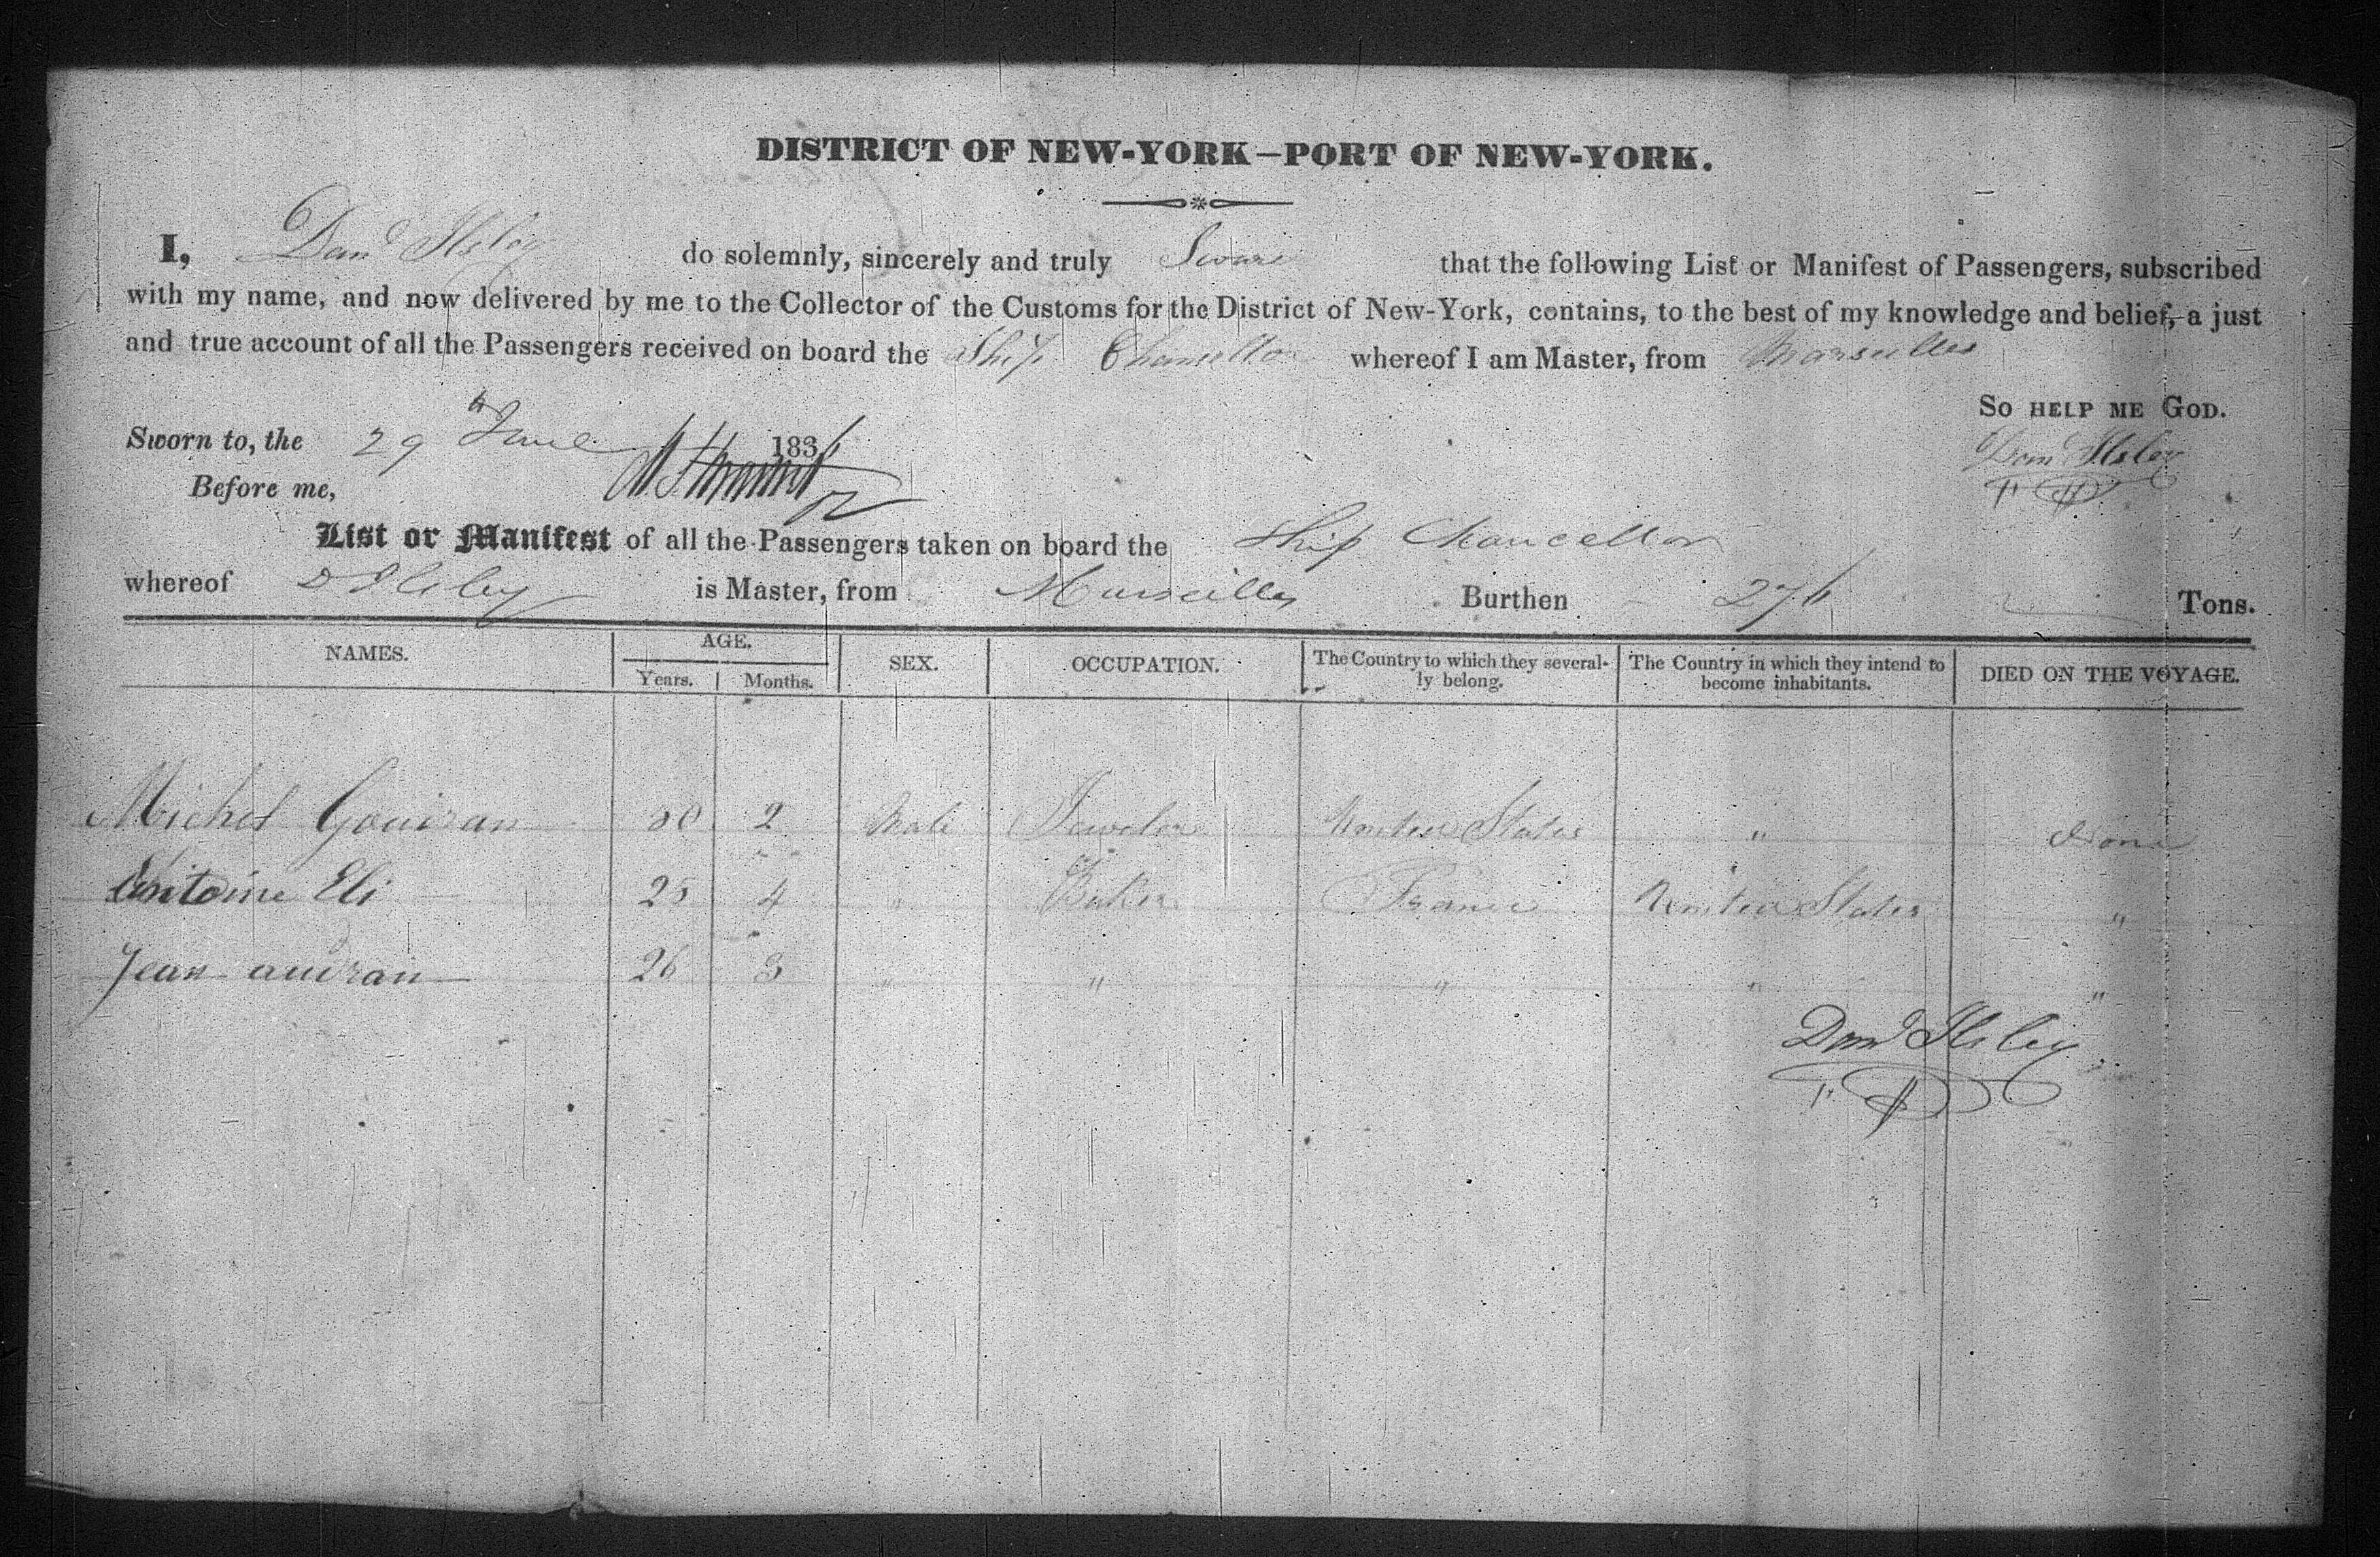 DISTRICT OF NEW-YORK—PORT OF NEW-YORK.
I, Dan^d Ilsley do solemnly, sincerely and truly Sware that the following List or Manifest of Passengers, subscribed
with my name, and now delivered by me to the Collector of the Customs for the District of New-York, contains, to the best of my knowledge and belief, a just
and true account of all the Passengers received on board the Ship Chancellor whereof I am Master, from Marseilles
So HELP ME GOD.
Sworn to, the 29th June 1836
Dan^d Ilsley
Before me,
List or Manifest of all the Passengers taken on board the Ship Chancellor
whereof D Ilsley is Master, from Marseilles Burthen 276 Tons.
NAMES. AGE. Years. Months. SEX. OCCUPATION. The Country to which they several-ly belong. The Country in which they intend to become inhabitants. DIED ON THE VOYAGE.
Michel Gouiran 30 2 Male Jeweler United States " None
Antoine Eli 25 4 " Baker France United States "
Jean audran 26 3 " " " " "
Dan^d Ilsley